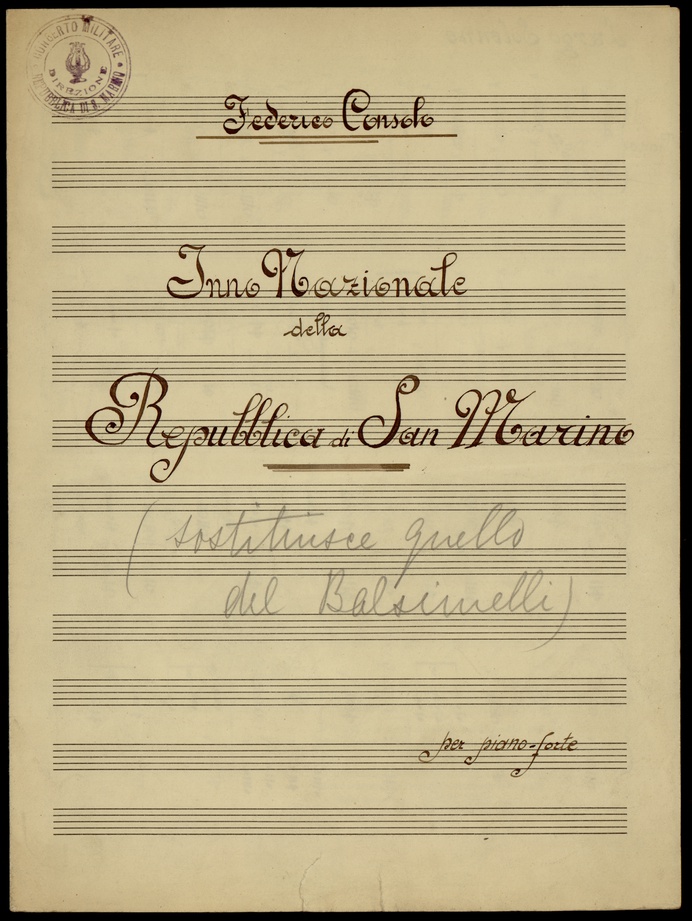 CONCERTO MILITARE
DIREZIONE
REPUBBLICA DI S. MARINO
Federico Consolo
Inno Nazionale
della
Repubblica di San Marino
(sostituisce quello
del Balsimelli)
per piano-forte